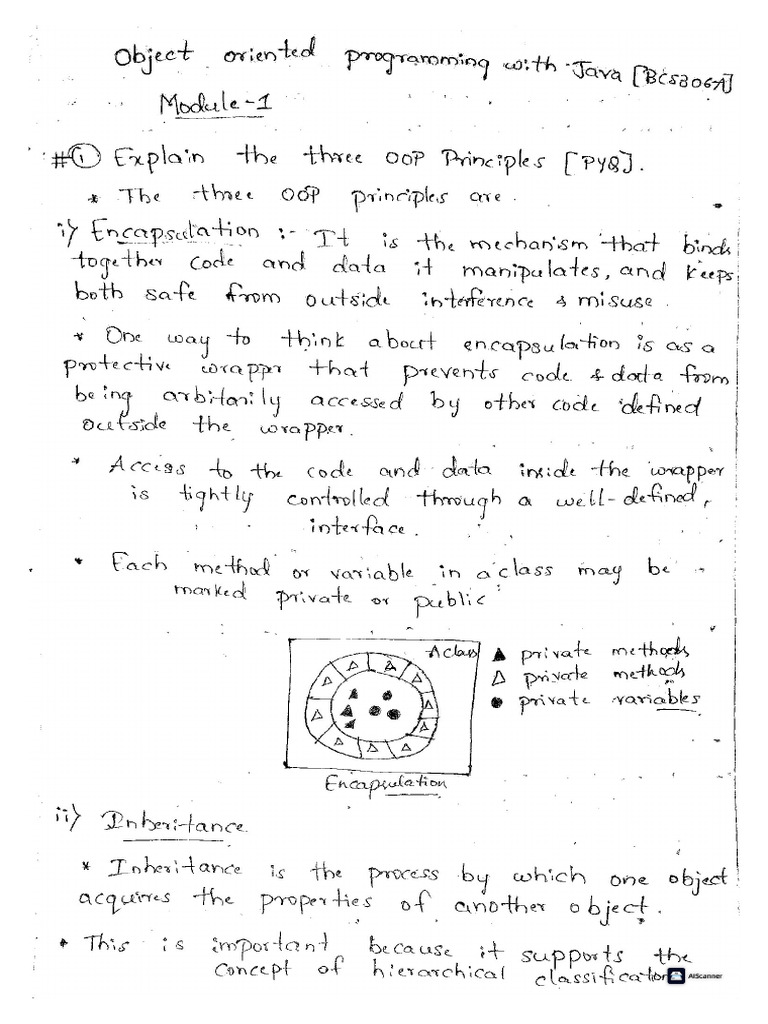 Object oriented programming with Java [BCS306A]
Module-1
#① Explain the three OOP Principles [PYQ].
* The three OOP principles are.
i) Encapsulation :- It is the mechanism that binds
together code and data it manipulates, and keeps
both safe from outside interference & misuse.
* One way to think about encapsulation is as a
protective wrappr that prevents code & data from
being arbitarily accessed by other code defined
outside the wrapper.
* Access to the code and data inside the wrapper
is tightly controlled through a well-defined,
interface.
* Each method or variable in a class may be
marked private or public
A class
▲ private methods
△ private methods
● private variables
Encapsulation
ii) Inheritance
* Inheritance is the process by which one object
acquires the properties of another object.
* This is important because it supports the
concept of hierarchical classification
AIScanner